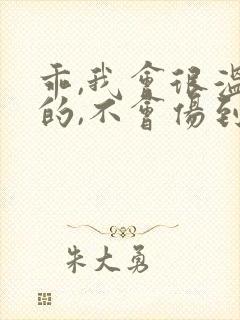 乖,我會很溫
的,不會傷到
朱大勇